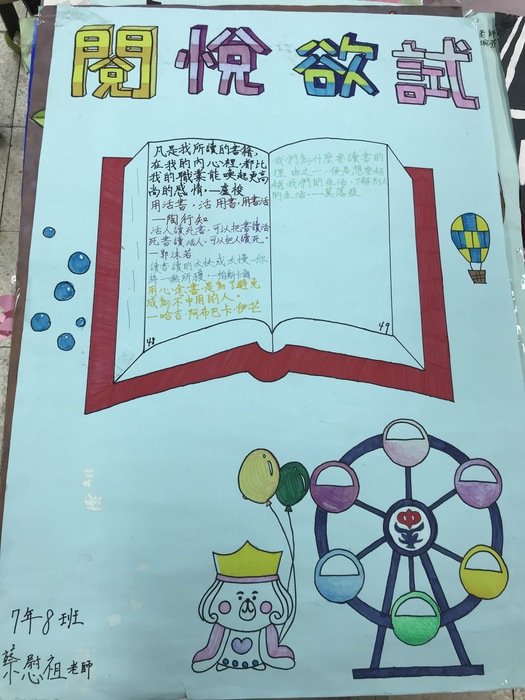 閱悅欲試
老師
凡是我所讀的書籍,
在我的內心裡,都比
我的職業能喚起更高
尚的感情,—盧梭
用活書,活用書,用書活
—陶行知
活人讀死書,可以把書讀活
死書讀活人,可以把人讀死,
—郭沫若
讀書讀的太快或太慢,你
將一無所獲,—帕斯卡爾
用心念書,是為了避免
成為不中用的人,
—哈吉·阿布巴卡·伊芒
48
我們為什麼要讀書的
理由之一,便是想超
越我們的生活,了解別人
的生活,—莫落亞
49
中
7年8班
蔡慰祖老師